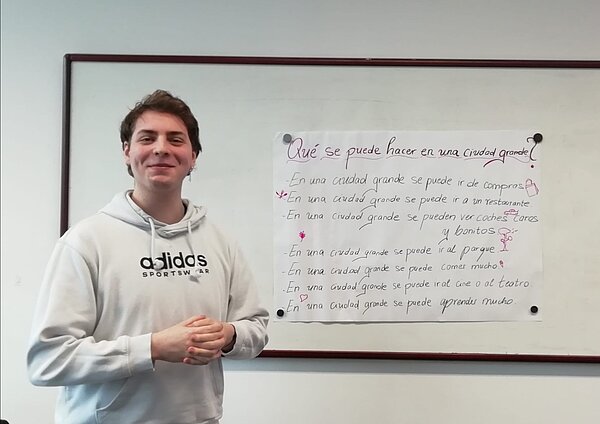 Qué se puede hacer en una ciudad grande?
- En una ciudad grande se puede ir de compras
- En una ciudad grande se puede ir a un restaurante
- En una ciudad grande se pueden ver coches caros
y bonitos
- En una ciudad grande se puede ir al parque
- En una ciudad grande se puede comer mucho
- En una ciudad grande se puede ir al cine o al teatro
- En una ciudad grande se puede aprender mucho.
adidas
SPORTSWEAR